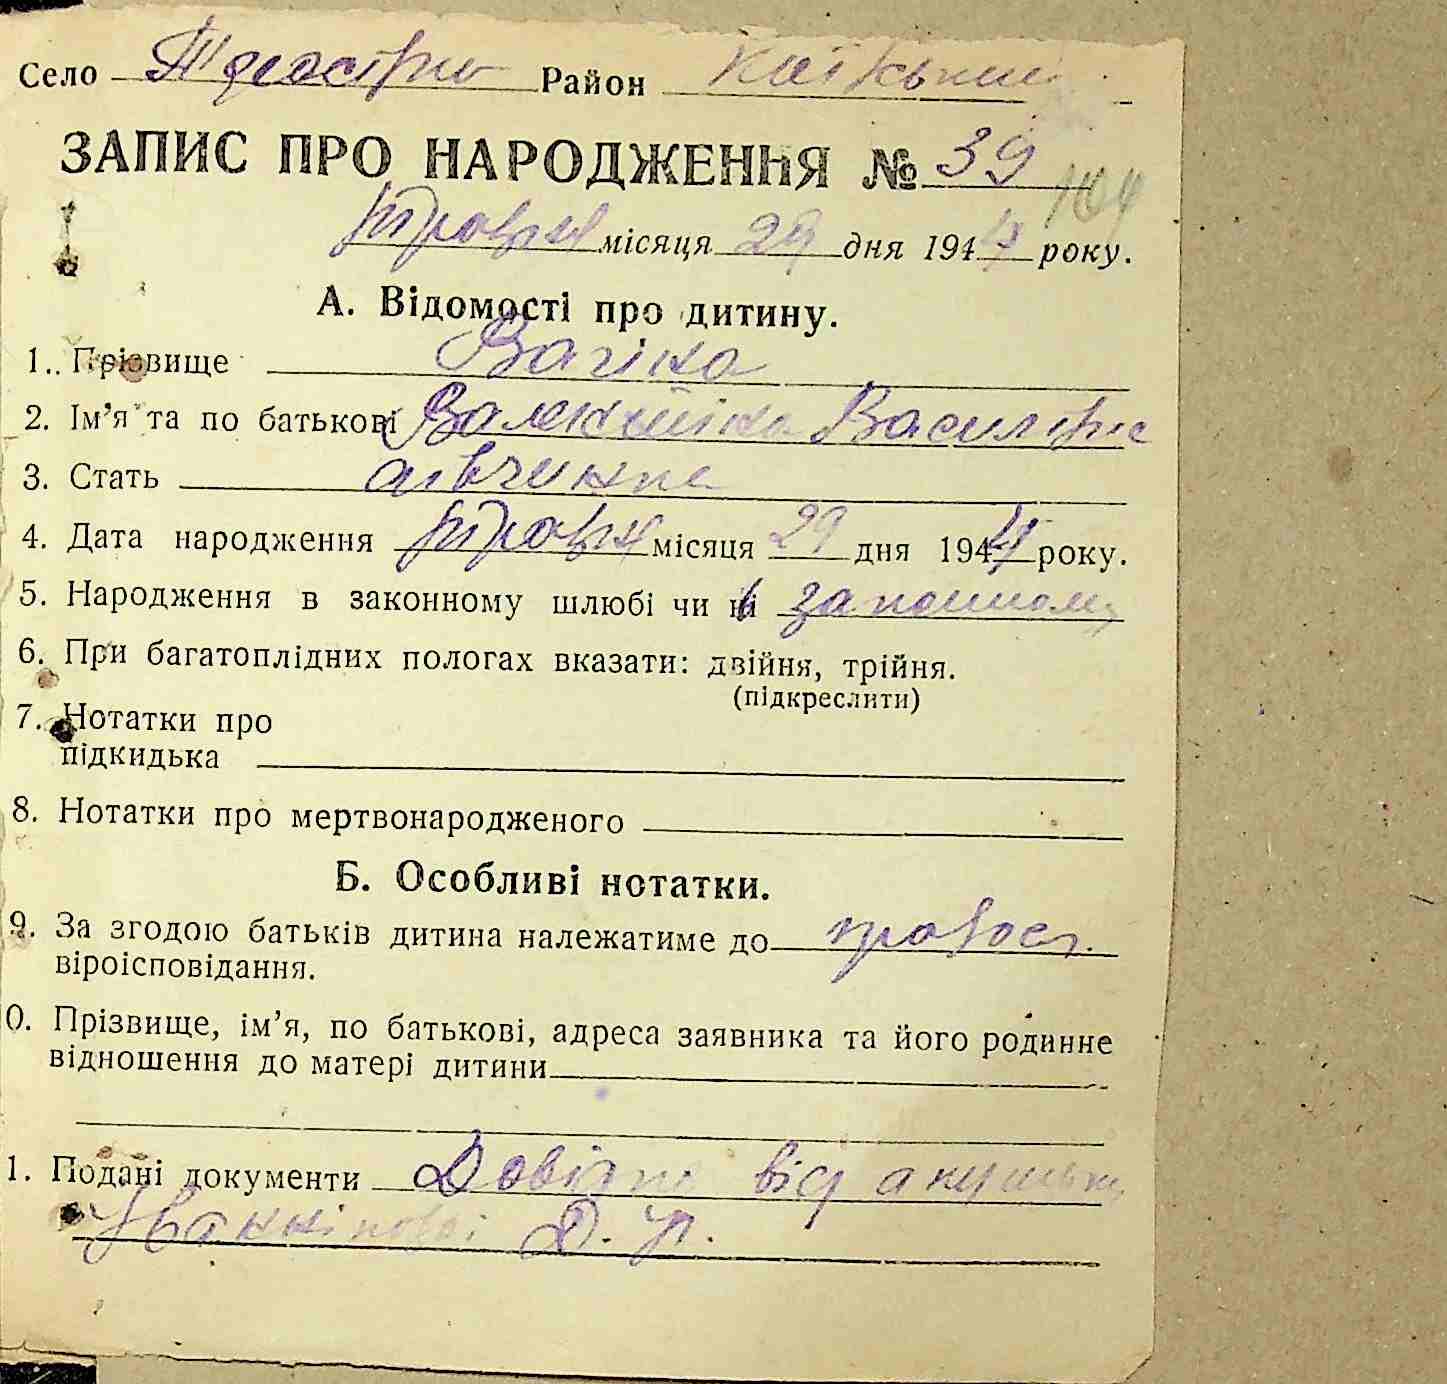 Село Район Каїський
ЗАПИС ПРО НАРОДЖЕННЯ № 39
104
травня місяця 29 дня 194 року.
А. Відомості про дитину.
1. Прізвище Вагіна
2. Ім’я та по батькові Валентіна
3. Стать дівчинка
4. Дата народження травня місяця 29 дня 194 року.
5. Народження в законному шлюбі чи ні законному
6. При багатоплідних пологах вказати: двійня, трійня.
(підкреслити)
7. Нотатки про
підкидька
8. Нотатки про мертвонародженого
Б. Особливі нотатки.
9. За згодою батьків дитина належатиме до правос.
віроісповідання.
0. Прізвище, ім’я, по батькові, адреса заявника та його родинне
відношення до матері дитини
1. Подані документи Довідка від акушерки
Д. П.